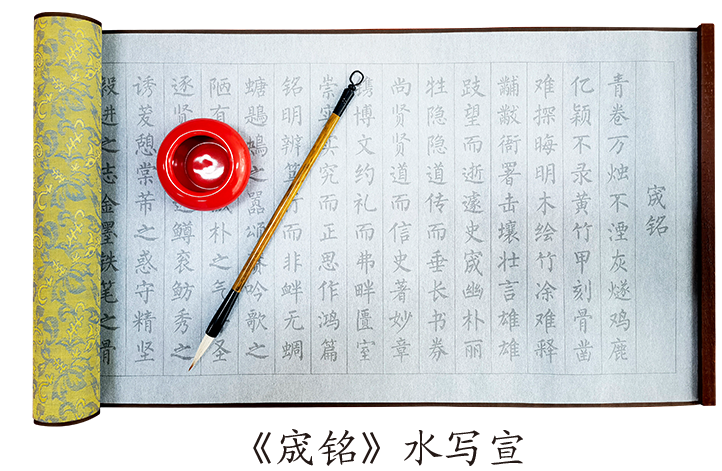 宬铭
青卷万烛不湮灰燧鸡鹿
亿颖不录黄竹甲刻骨凿
难探晦明木绘竹凃难释
黼黻衙署击壤壮言雄雄
跂望而逝逺史宬幽朴丽
牲隐隐道传而垂长书券
尚贤贤道而信史著妙章
博文约礼而弗畔匱室
崇实究而正思作鸿篇
铭明辨行而非衅无蜩
螗鶗之嚣颂吟歌之
陋有朴之气圣
逐贤鳟衮鲂秀之
诱芰憩棠芾之惑守精坚
进之志金墨铁笔之骨
《宬铭》水写宣